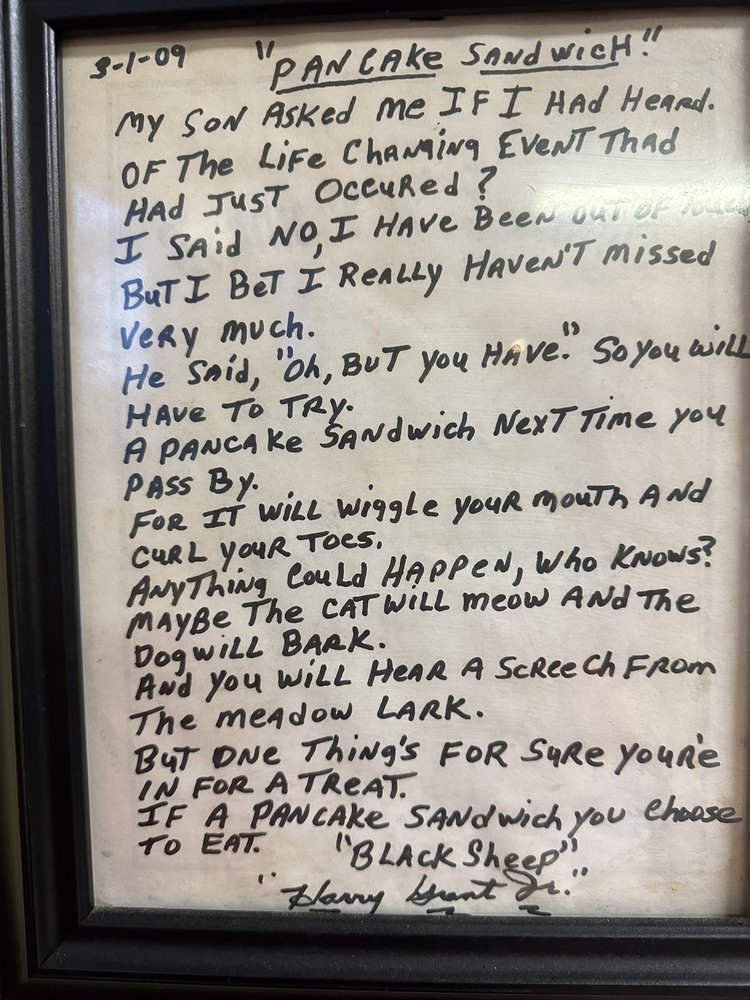 3-1-09 "PANCAKE SANDWICH"
MY SON ASKED ME IF I HAD HEARD.
OF THE LIFE CHANGING EVENT THAD
HAD JUST OCCURED?
I SAID NO, I HAVE BEEN OUT OF
BUT I BET I REALLY HAVEN'T MISSED
VERY MUCH.
HE SAID, "OH, BUT YOU HAVE." SO YOU WILL
HAVE TO TRY.
A PANCAKE SANDWICH NEXT TIME YOU
PASS BY.
FOR IT WILL WIGGLE YOUR MOUTH AND
CURL YOUR TOES.
ANYTHING COULD HAPPEN, WHO KNOWS?
MAYBE THE CAT WILL MEOW AND THE
DOG WILL BARK.
AND YOU WILL HEAR A SCREECH FROM
THE MEADOW LARK.
BUT ONE THING'S FOR SURE YOUR'E
IN FOR A TREAT.
IF A PANCAKE SANDWICH YOU CHOOSE
TO EAT. "BLACK SHEEP"
"Harry Grant Jr."